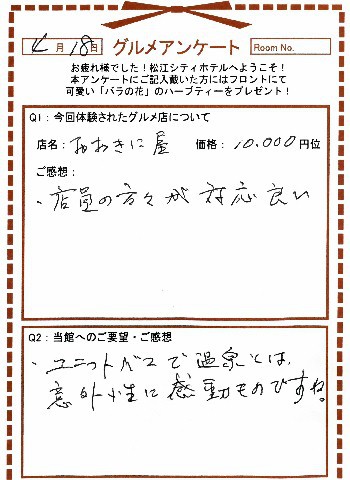 4月18日 グルメアンケート Room No.
お疲れ様でした!松江シティホテルへようこそ!
本アンケートにご記入戴いた方にはフロントにて
可愛い「バラの花」のハーブティーをプレゼント!
Q1:今回体験されたグルメ店について
店名:おおきに屋 価格:10.000円位
ご感想:
・店員の方々が対応良い
Q2:当館へのご要望・ご感想
・ユニットバスで温泉とは、
意外性に感動ものですね。